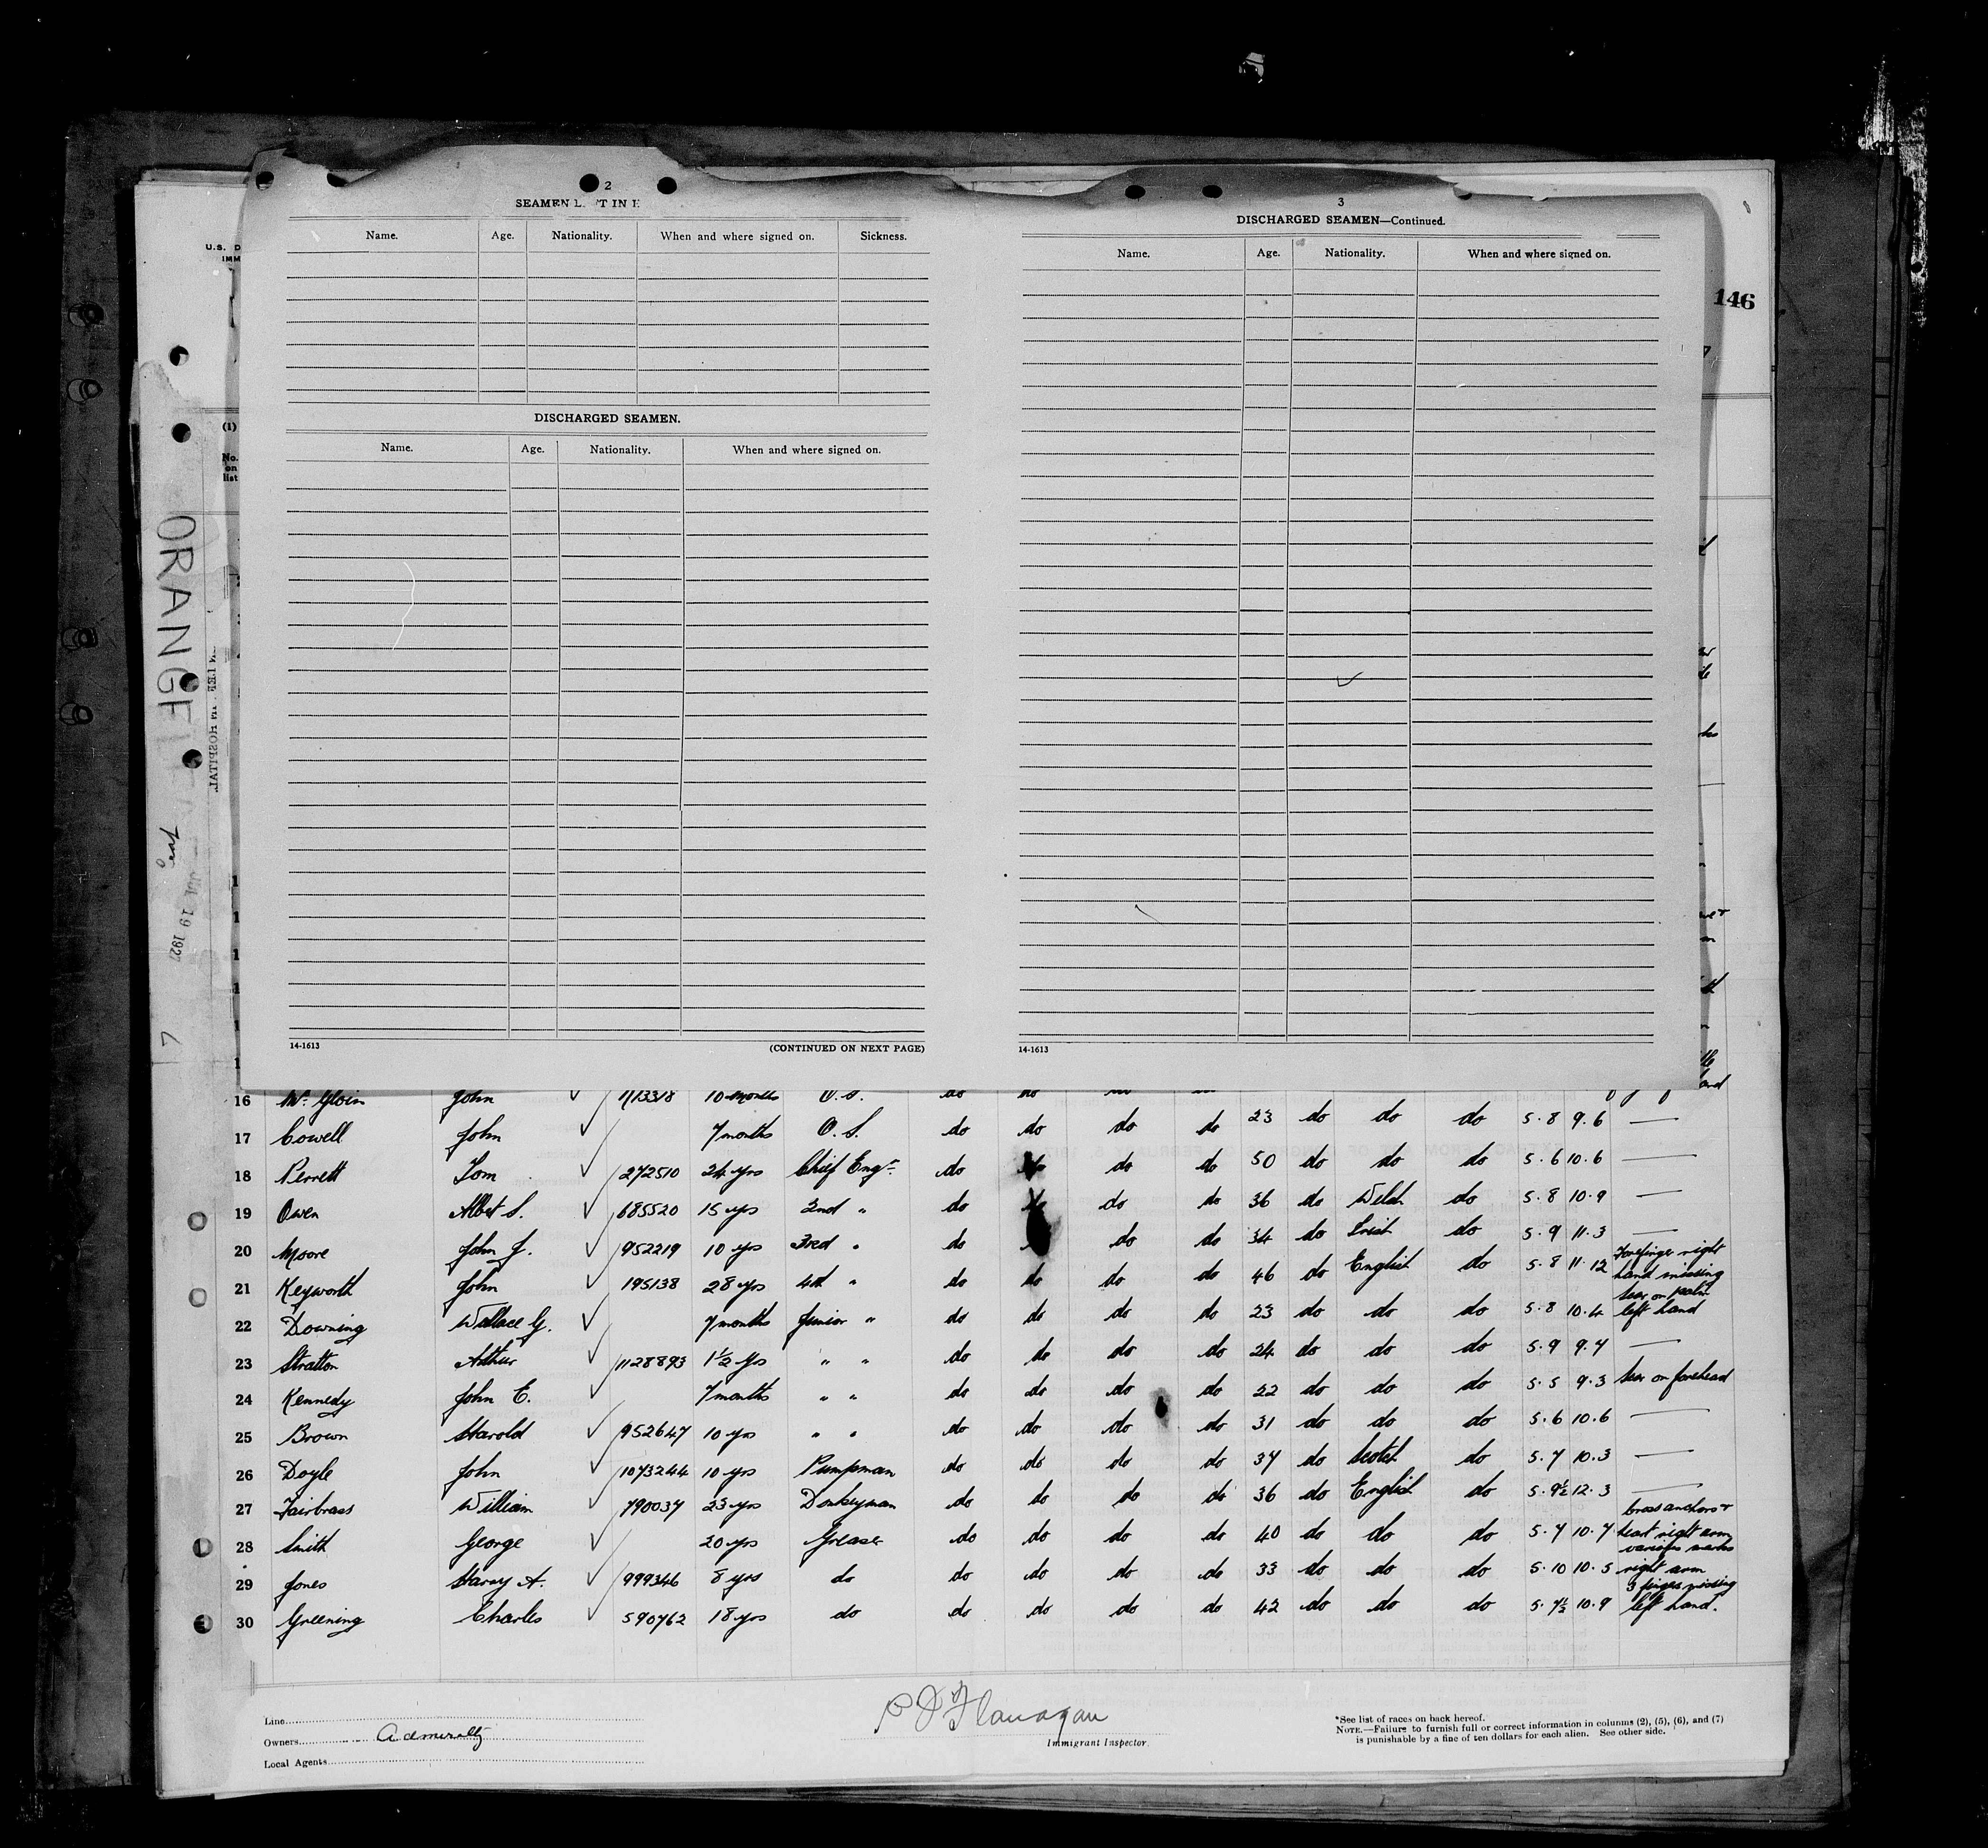 2
SEAMEN L T IN
Name. Age. Nationality. When and where signed on. Sickness.
DISCHARGED SEAMEN.
Name. Age. Nationality. When and where signed on.
14-1613 (CONTINUED ON NEXT PAGE)
3
DISCHARGED SEAMEN—Continued.
Name. Age. Nationality. When and where signed on.
14-1613
146
U.S. D
IMM
(1)
No.
on
list
ORANGE
HOSPITAL
19 1927
16 Mc Gloin John 1113318 10 months O.S. do do
17 Cowell John 7 months O.S. do do do do 23 do do do 5.8 9.6 —
18 Perrett Tom 272510 24 yrs Chief Engr. do do do do 50 do do do 5.6 10.6 —
19 Owen Albert S. 685520 15 yrs 2nd " do do do 36 do Welsh do 5.8 10.9 —
20 Moore John J. 952219 10 yrs 3red " do do do 34 do Irish do 5.9 11.3 —
21 Keyworth John 195138 28 yrs 4th " do do do do 46 do English do 5.8 11.12 Forefinger right hand missing
22 Downing Wallace G. 7 months Junior " do do do do 23 do do do 5.8 10.4 scar on palm left hand
23 Stratton Arthur 1128893 1½ yrs " " do do do do 24 do do do 5.9 9.7 —
24 Kennedy John E. 7 months " " do do do do 22 do do do 5.5 9.3 scar on forehead
25 Brown Harold 952647 10 yrs " " do do do do 31 do do do 5.6 10.6 —
26 Doyle John 1073244 10 yrs Pumpman do do do do 37 do Scotch do 5.7 10.3 —
27 Fairbrass William 790037 23 yrs Donkeyman do do do do 36 do English do 5.9½ 12.3 —
28 Smith George 20 yrs Greaser do do do do 40 do do do 5.7 10.7 cross anchors & heart right arm
29 Jones Harry A. 999346 8 yrs do do do do do 33 do do do 5.10 10.5 various marks right arm
30 Greening Charles 590762 18 yrs do do do do do 42 do do do 5.7½ 10.9 3 fingers missing left hand.
Line
Owners Admiralty
Local Agents
P D Flanagan
Immigrant Inspector.
*See list of races on back hereof.
NOTE.—Failure to furnish full or correct information in columns (2), (5), (6), and (7)
is punishable by a fine of ten dollars for each alien. See other side.